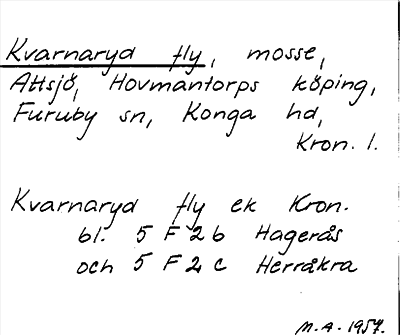 Kvarnaryd fly, mosse,
Attsjö, Hovmantorps köping,
Furuby sn, Konga hd,
Kron. l.
Kvarnaryd fly ek Kron.
bl. 5 F 2 b Hagerås
och 5 F 2 c Herråkra
M.A. 1957.